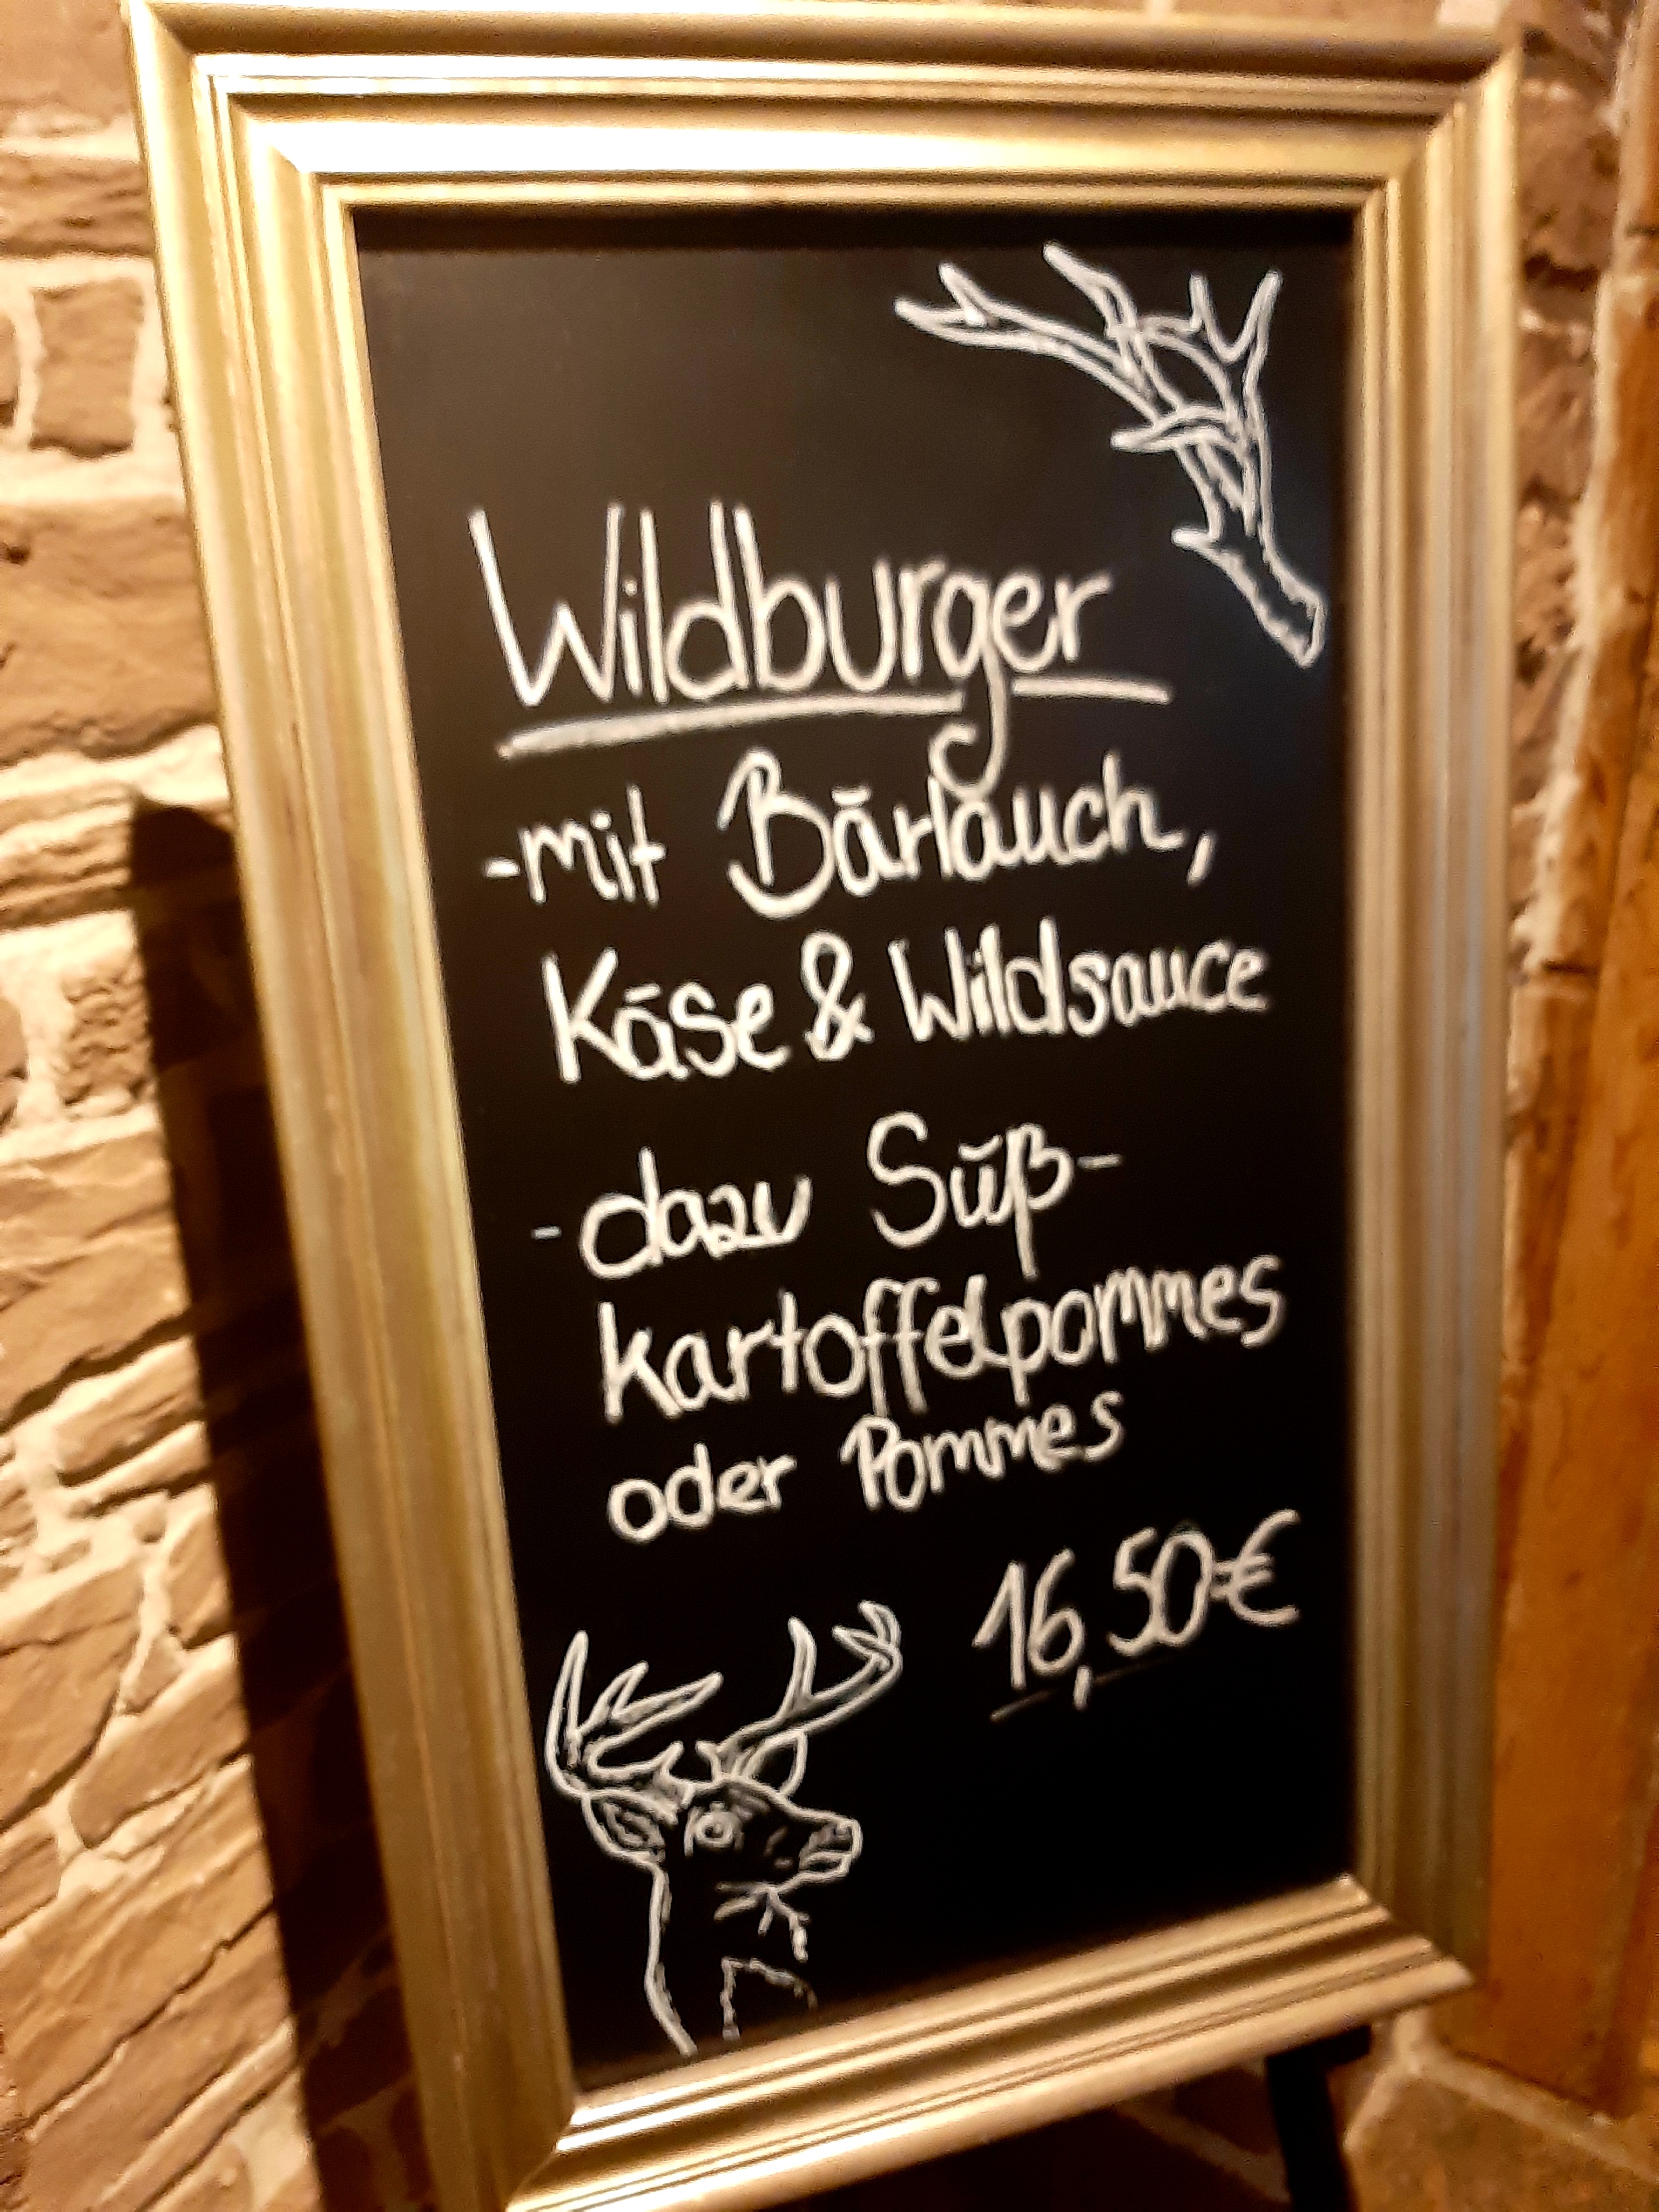 Wildburger
-mit Bärlauch,
Käse & Wildsauce
-dazu Süß-
kartoffelpommes
oder Pommes
16,50€